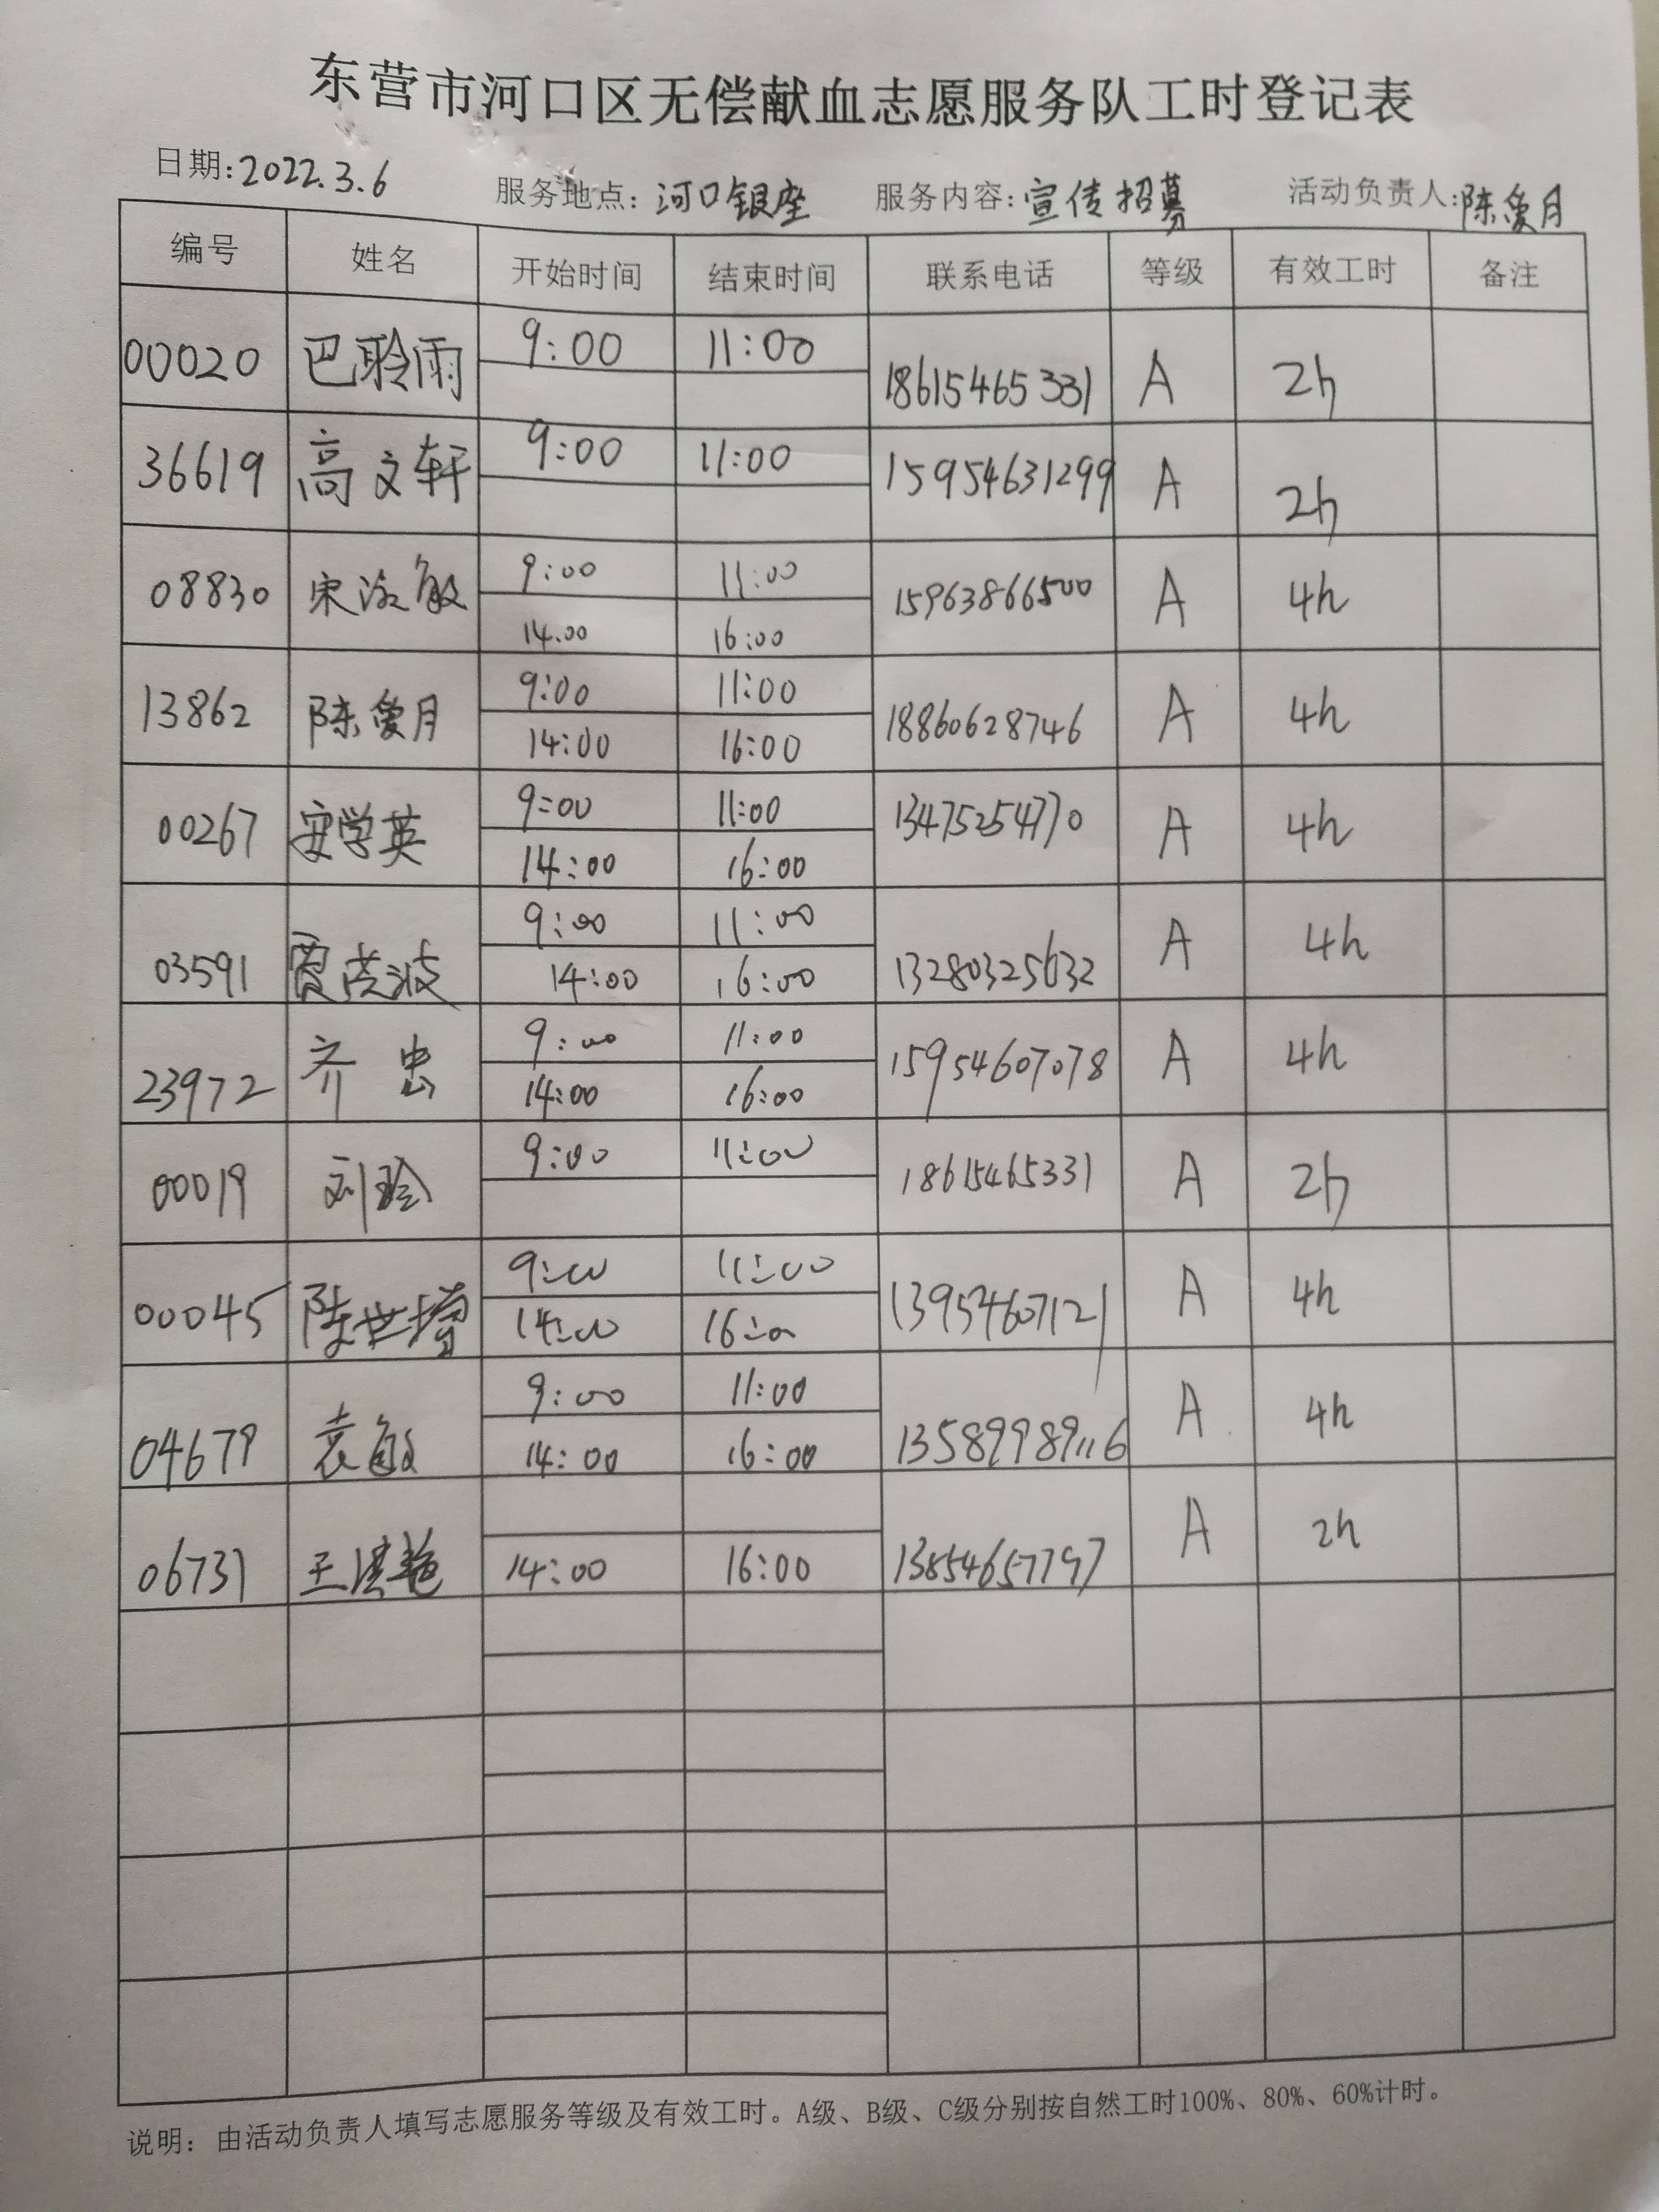 东营市河口区无偿献血志愿服务队工时登记表
日期:2022.3.6 服务地点:河口银座 服务内容:宣传招募 活动负责人:陈爱月
编号 姓名 开始时间 结束时间 联系电话 等级 有效工时 备注
00020 巴聆雨 9:00 11:00 18615465331 A 2h
36619 高文轩 9:00 11:00 15954631299 A 2h
08830 宋 敏 9:00 11:00 15963866500 A 4h
14.00 16:00
13862 陈爱月 9:00 11:00 18860628746 A 4h
14:00 16:00
00267 安学英 9:00 11:00 13475254770 A 4h
14:00 16:00
03591 贾 波 9:00 11:00 13280325632 A 4h
14:00 16:00
23972 齐忠 9:00 11:00 15954607078 A 4h
14:00 16:00
00019 刘玲 9:00 11:00 18615465331 A 2h
00045 陈世增 9:00 11:00 13954607121 A 4h
14:00 16:00
04679 袁敏 9:00 11:00 13589989116 A 4h
14:00 16:00
06731 王洪艳 14:00 16:00 13854657797 A 2h
说明：由活动负责人填写志愿服务等级及有效工时。A级、B级、C级分别按自然工时100%、80%、60%计时。